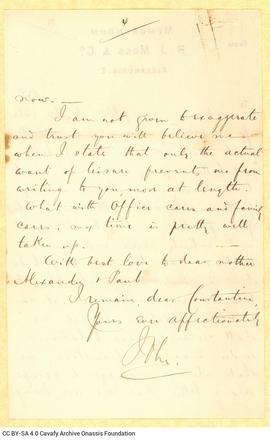 4
now. —
I am not given to exaggerate
and trust you will believe me
when I state that only the actual
want of leisure prevents me from
writing to you more at length.
What with Office cares and family
cares, my time is pretty well
taken up. —
With best love to dear mother
Alexander & Paul
I remain, dear Constantine,
Yours ever affectionately
John
CC BY-SA 4.0 Cavafy Archive Onassis Foundation